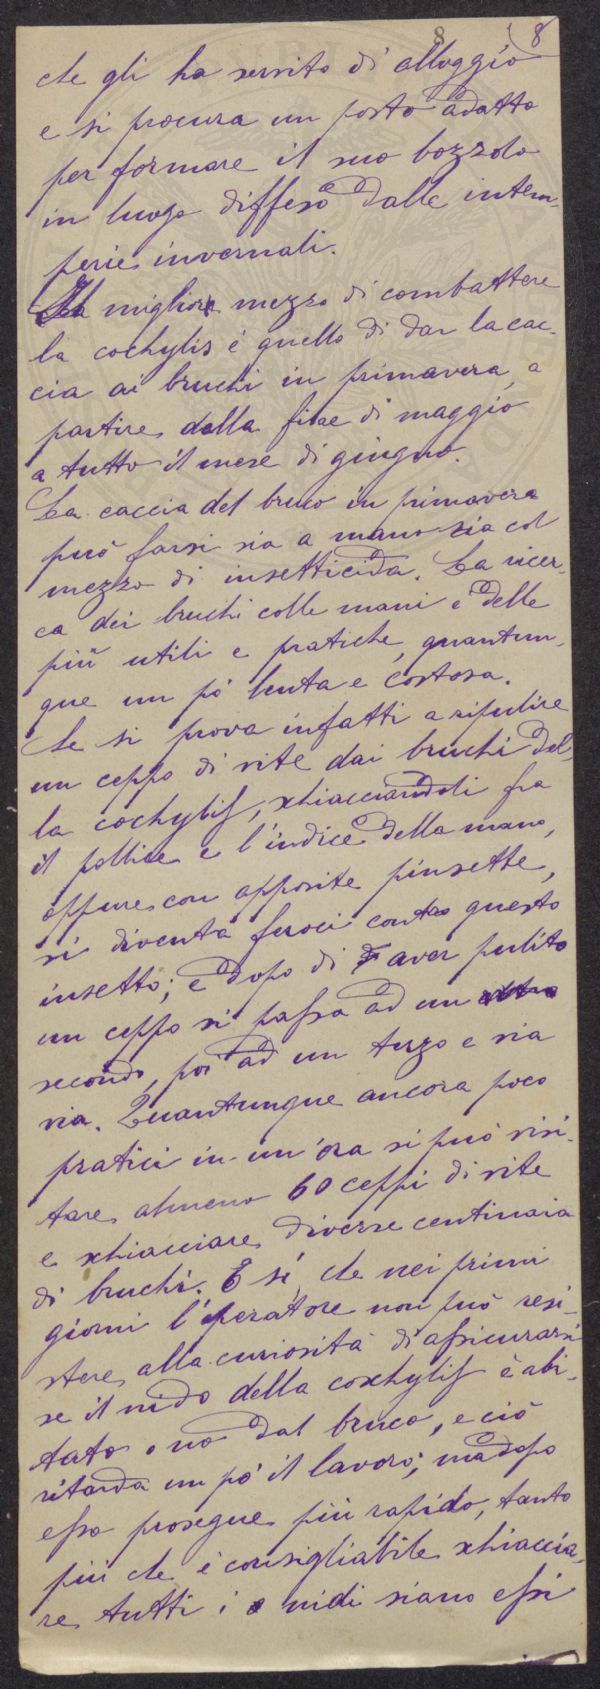 8 8
che gli ha servito di alloggio
e si procura un posto adatto
per formare il suo bozzolo
in luogo diffeso dalle intem-
perie invernali.
Il miglior mezzo di combattere
la cochylis è quello di dar la cac-
cia ai bruchi in primavera, a
partire dalla fine di maggio
a tutto il mese di giugno.
La caccia del bruco in primavera
può farsi sia a mano sia col
mezzo di insetticida. La ricer-
ca dei bruchi colle mani è delle
più utili e pratiche, quantun-
que un pò lenta e costosa.
Se si prova infatti a ripulire
un ceppo di vite dai bruchi del-
la cochylis, schiacciandoli fra
il pollice e l'indice della mano,
oppure con apposite pinsette,
si diventa feroci contro questo
insetto; e dopo di aver pulito
un ceppo si passa ad un
secondo, poi ad un terzo e via
via. Quantunque ancora poco
pratici in un'ora si può visi-
tare almeno 60 ceppi di vite
e schiacciare diverse centinaia
di bruchi. E sì, che nei primi
giorni l'operatore non può resi-
stere alla curiosità di assicurarsi
se il nido della cochylis è abi-
tato o no dal bruco, e ciò
ritarda un pò il lavoro; ma dopo
esso prosegue più rapido, tanto
più che è consigliabile schiaccia-
re tutti i nidi siano essi